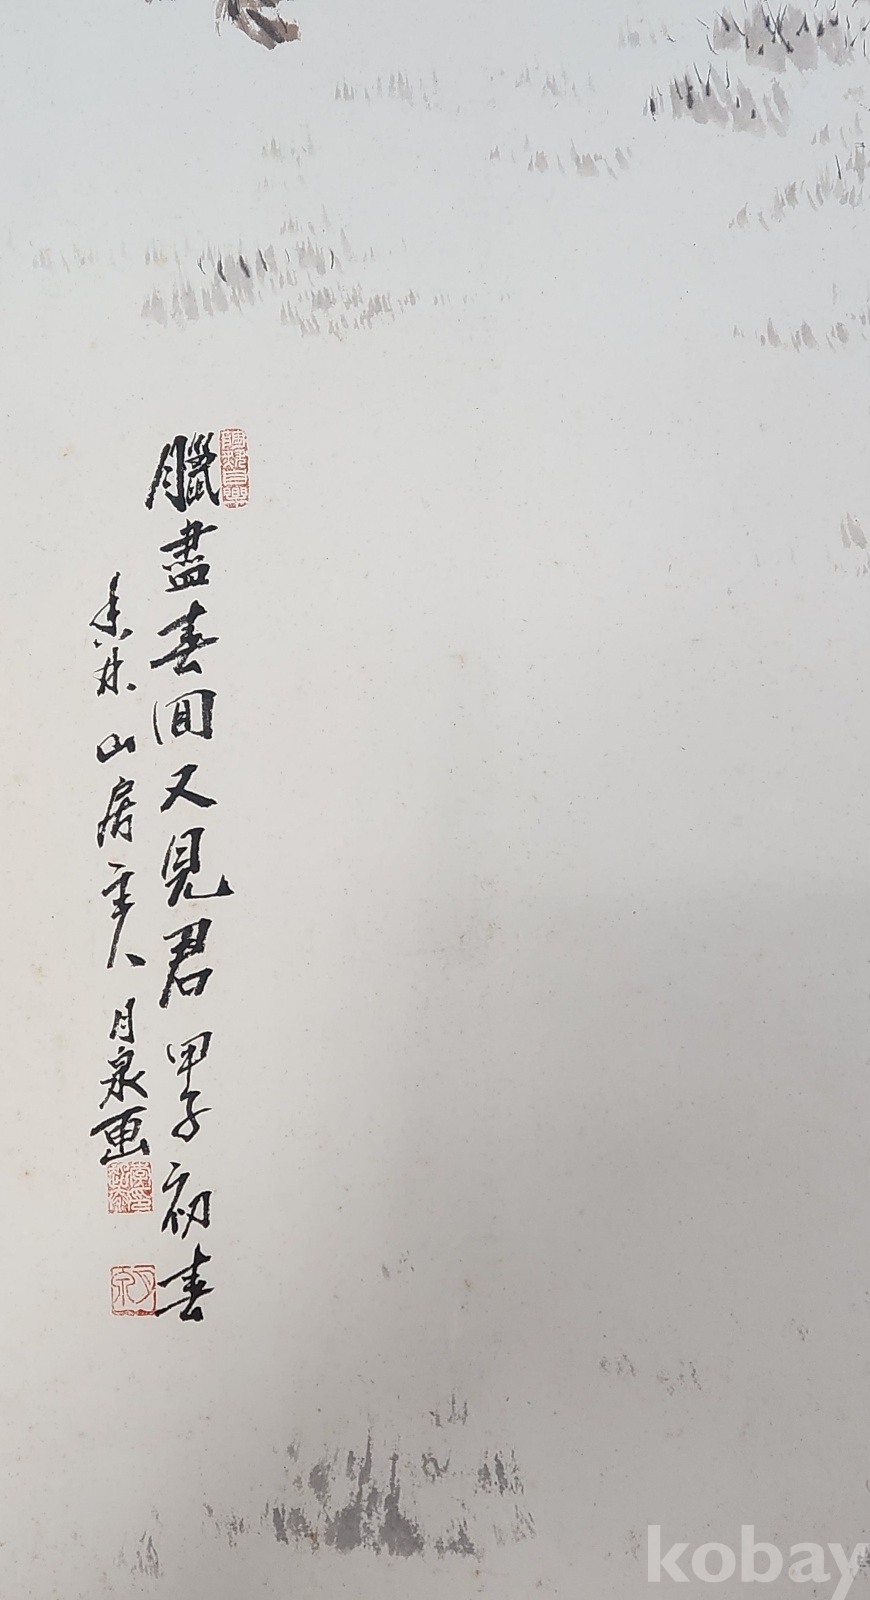 臘盡春回又見君 甲子初春
香林山房主人 月泉画
月泉
kobay